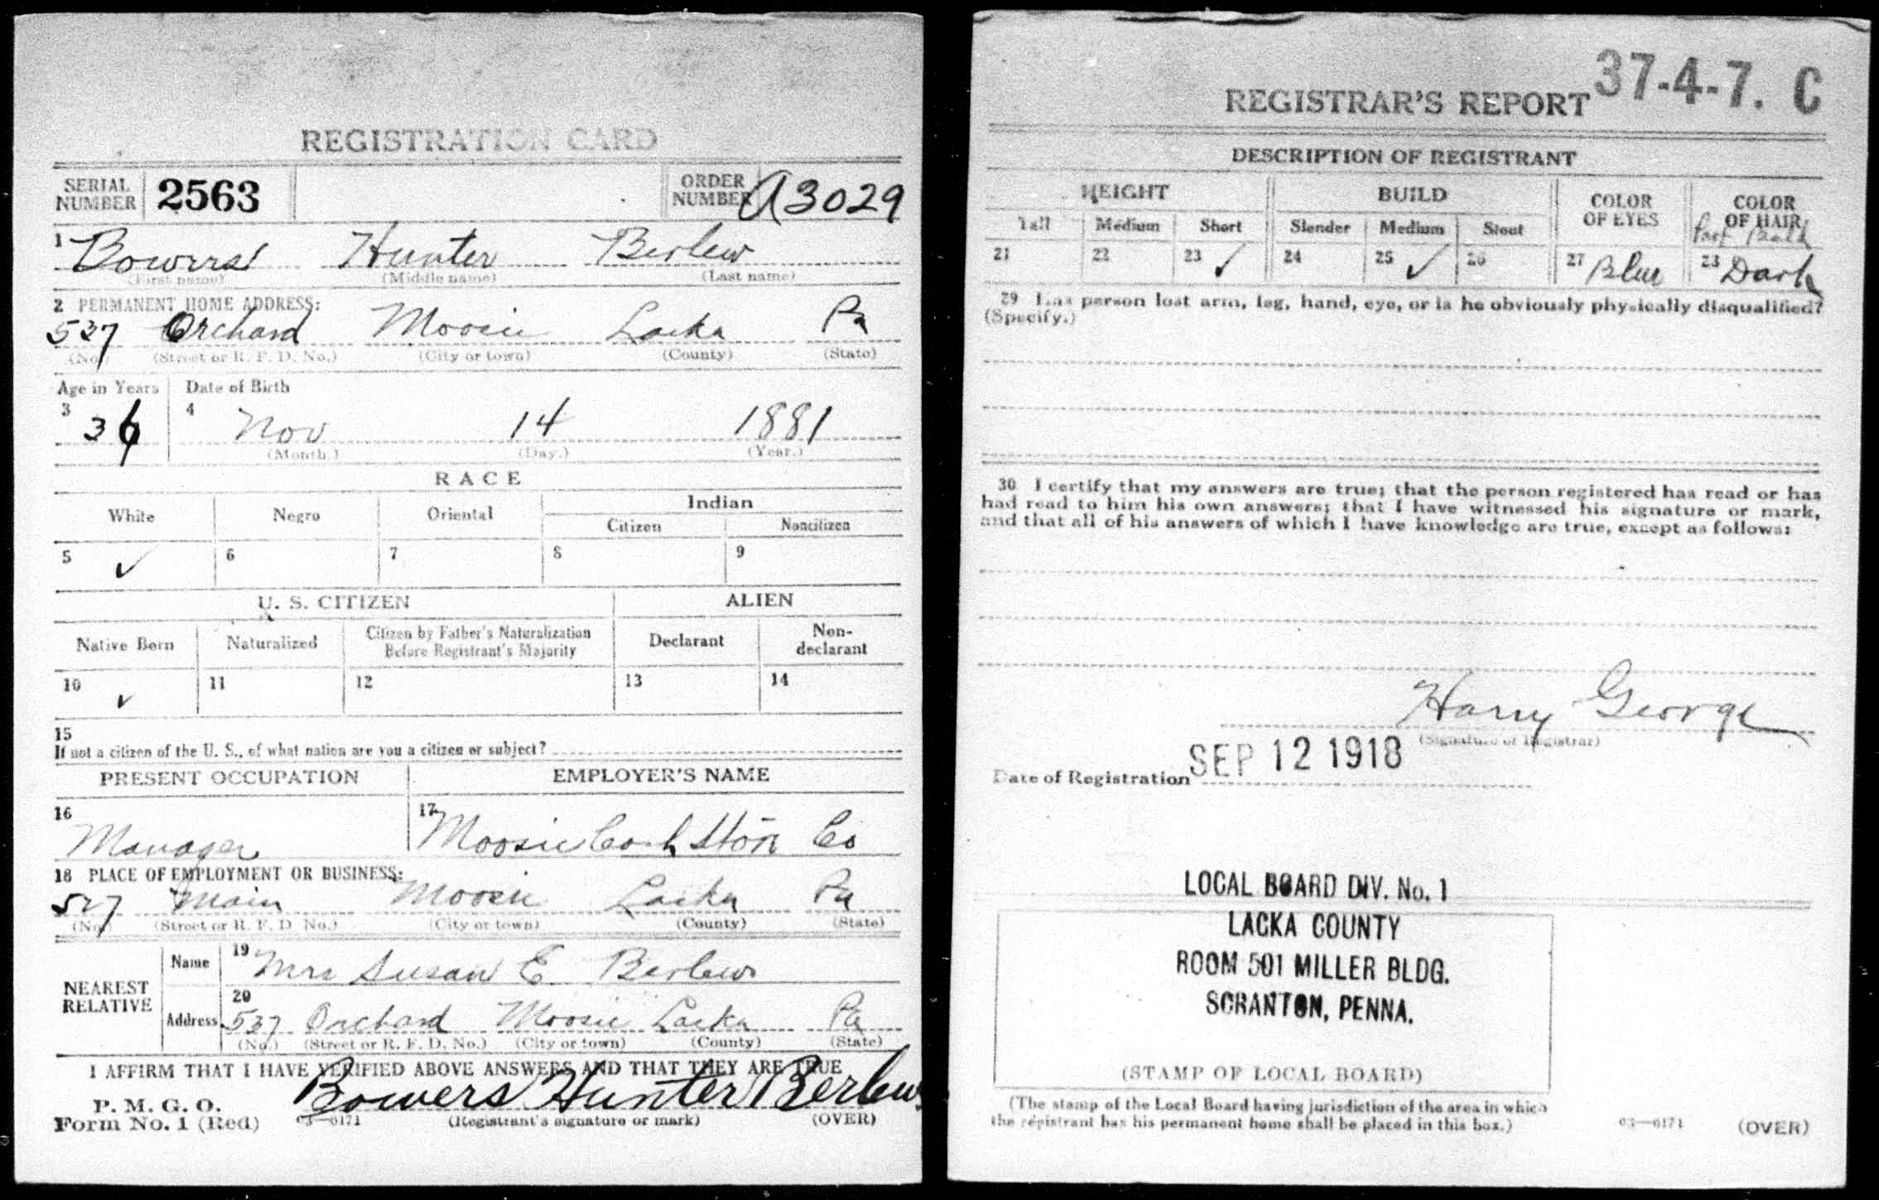 REGISTRATION CARD
SERIAL NUMBER 2563 ORDER NUMBER A3029
1 Bowers Hunter Berlew
(First name) (Middle name) (Last name)
2 PERMANENT HOME ADDRESS:
537 Orchard Moosic Lacka Pa
(No.) (Street or R. F. D. No.) (City or town) (County) (State)
Age in Years Date of Birth
3 36 4 Nov 14 1881
(Month.) (Day.) (Year.)
RACE
White Negro Oriental Indian
Citizen Noncitizen
5 ✓ 6 7 8 9
U. S. CITIZEN ALIEN
Native Born Naturalized Citizen by Father's Naturalization Before Registrant's Majority Declarant Non-declarant
10 ✓ 11 12 13 14
15
If not a citizen of the U. S., of what nation are you a citizen or subject?
PRESENT OCCUPATION EMPLOYER'S NAME
16 Manager 17 Moosic Cash Store Co
18 PLACE OF EMPLOYMENT OR BUSINESS:
Main Moosic Lacka Pa
(No.) (Street or R. F. D. No.) (City or town) (County) (State)
NEAREST RELATIVE
Name 19 Mrs Susan E Berlew
Address 20 537 Orchard Moosic Lacka Pa
(No.) (Street or R. F. D. No.) (City or town) (County) (State)
I AFFIRM THAT I HAVE VERIFIED ABOVE ANSWERS AND THAT THEY ARE TRUE
P. M. G. O.
Form No. 1 (Red) Bowers Hunter Berlew
03—6171 (Registrant's signature or mark) (OVER)
REGISTRAR'S REPORT 37-4-7. C
DESCRIPTION OF REGISTRANT
HEIGHT BUILD COLOR OF EYES COLOR OF HAIR
Tall Medium Short Slender Medium Stout Part Bald
21 22 23 ✓ 24 25 ✓ 26 27 Blue 28 Dark
29 Has person lost arm, leg, hand, eye, or is he obviously physically disqualified?
(Specify.)
30 I certify that my answers are true; that the person registered has read or has
had read to him his own answers; that I have witnessed his signature or mark,
and that all of his answers of which I have knowledge are true, except as follows:
Harry George
(Signature of Registrar)
Date of Registration SEP 12 1918
LOCAL BOARD DIV. No. 1
LACKA COUNTY
ROOM 501 MILLER BLDG.
SCRANTON, PENNA.
(STAMP OF LOCAL BOARD)
(The stamp of the Local Board having jurisdiction of the area in which
the registrant has his permanent home shall be placed in this box.)
03—6171 (OVER)